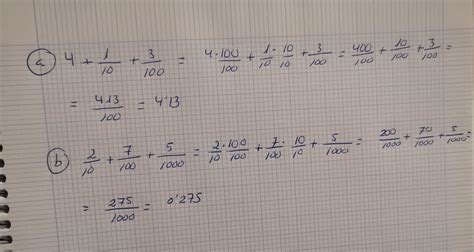 a) 4 + 1/10 + 3/100 = 4·100/100 + 1/10 · 10/10 + 3/100 = 400/100 + 10/100 + 3/100 =
= 413/100 = 4'13
b) 2/10 + 7/100 + 5/1000 = 2/10 · 100/100 + 7/100 · 10/10 + 5/1000 = 200/1000 + 70/1000 + 5/1000 =
= 275/1000 = 0'275